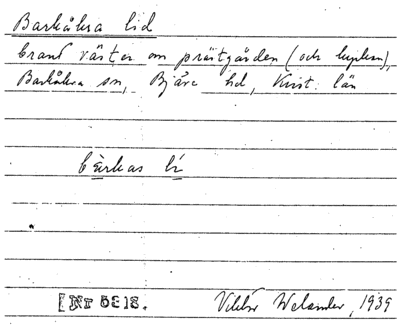 Barkåkra lid
brant väster om prästgården (och kyrkan),
Barkåkra sn, Bjäre hd, Krist. län
bärkas li
[Nr 5818.
Viktor Welander, 1939